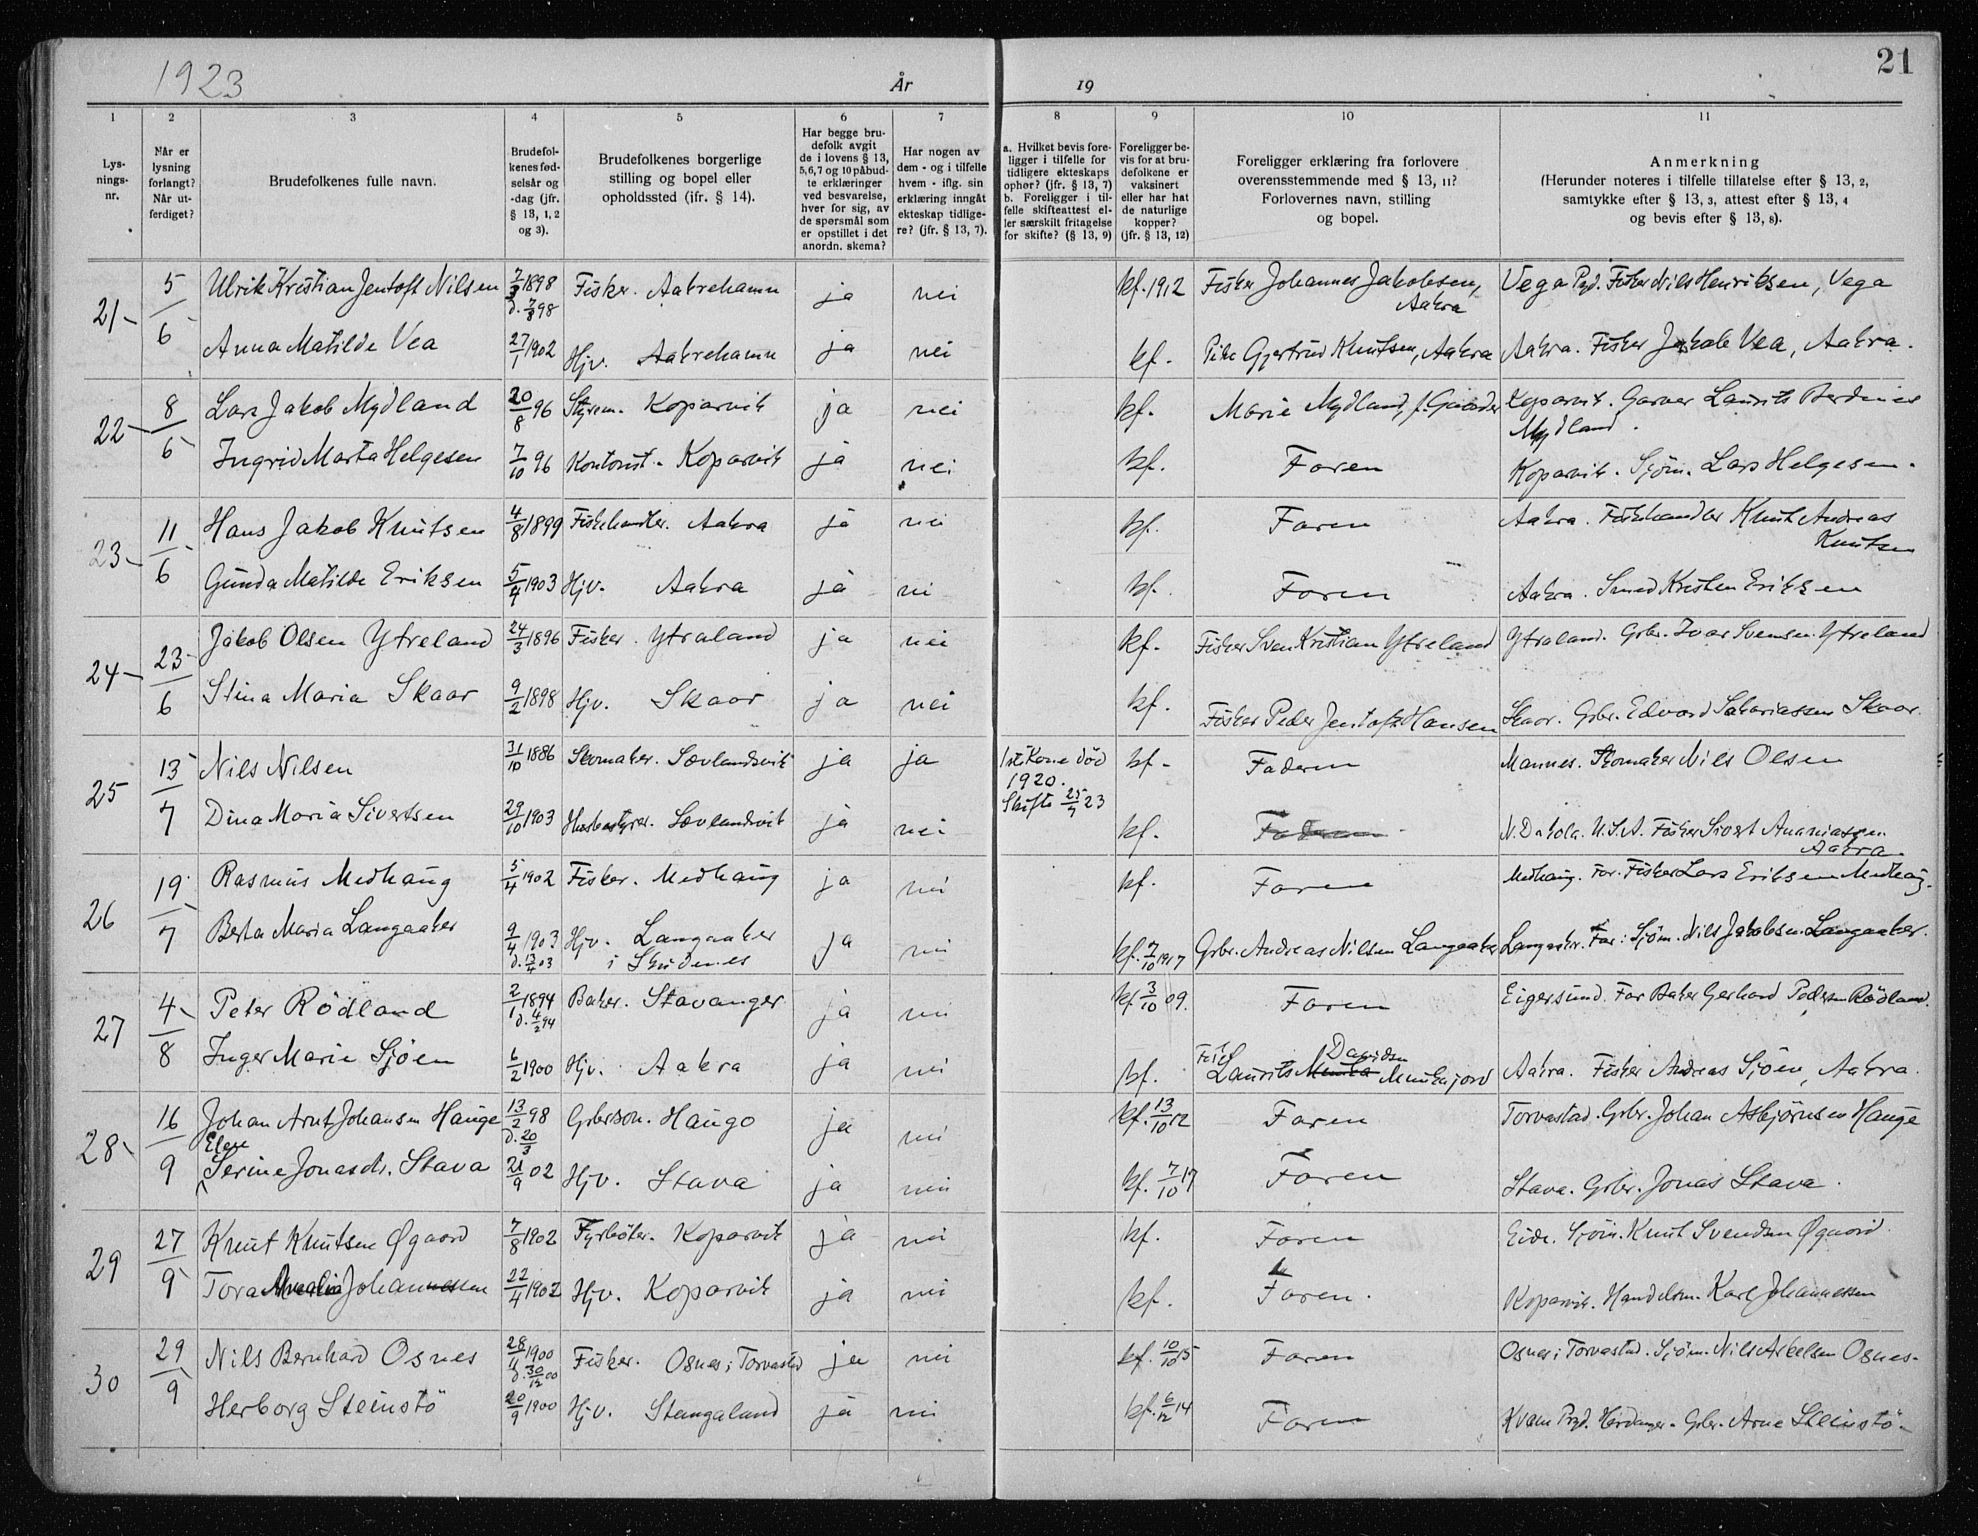 1923
År
19
21
1
2
3
4
5
6
7
8
9
10
11
Lys-
nings-
nr.
Når er
lysning
forlangt?
Når ut-
ferdiget?
Brudefolkenes fulle navn.
Brudefol-
kenes fød-
selsår og
-dag (jfr.
§ 13, 1, 2
og 3).
Brudefolkenes borgerlige
stilling og bopel eller
opholdssted (ifr. § 14).
Har begge bru-
defolk avgit
de i lovens § 13,
5,6,7 og 10 påbud-
te erklæringer
ved besvarelse,
hver for sig, av
de spørsmål som
er opstillet i det
anordn. skema?
Har nogen av
dem - og i tilfelle
hvem - iflg. sin
erklæring inngåt
ekteskap tidlige-
re? (jfr. § 13, 7).
a. Hvilket bevis fore-
ligger i tilfelle for
tidligere ekteskaps
ophør? (jfr. § 13, 7)
b. Foreligger i til-
felle skifteattest el-
ler særskilt fritagelse
for skifte? (§ 13, 9)
Foreligger be-
vis for at bru-
defolkene er
vaksinert
eller har hat
de naturlige
kopper?
(jfr. § 13, 12)
Foreligger erklæring fra forlovere
overensstemmende med § 13, 11?
Forlovernes navn, stilling
og bopel.
Anmerkning
(Herunder noteres i tilfelle tillatelse efter § 13, 2,
samtykke efter § 13, 3, attest efter § 13, 4
og bevis efter § 13, 8).
21 5/6 Ulrik Kristian Jentoft Nilsen 7/3 1898 d. 7/8 98 Fisker. Aakrehamn ja nei kf. 1912 Fisker Johannes Jakobsen, Aakra Vega Pgd. Fisker Nils Henriksen, Vega
Anna Matilde Vea 27/1 1902 Hjv. Aakrehamn ja nei kf. Pike Gjertrud Knutsen, Aakra Aakra. Fisker Jakob Vea, Aakra.
22 8/6 Lars Jakob Mydland 20/8 96 Styrm. Kopervik ja nei kf. Marie Mydland, f. Koparvik. Garver Laurits Berdines
Mydland.
Ingrid Marta Helgesen 7/10 96 Kontorist. Koparvik ja nei kf. Faren Koparvik. Sjöm. Lars Helgesen.
23 11/6 Hans Jakob Knutsen 4/8 1899 Fiskehandler. Aakra ja nei kf. Faren Aakra. Fiskehandler Knut Andreas
Knutsen
Gunda Matilde Eriksen 5/4 1903 Hjv. Aakra ja nei kf. Faren Aakra. Smed Kristen Eriksen
24 23/6 Jakob Olsen Ytreland 24/3 1896 Fisker. Ytraland ja nei kf. Fisker Sven Kristian Ytreland Ytraland. Grbr. Ivar Svensen Ytreland
Stina Maria Skaar 9/2 1898 Hjv. Skaar ja nei kf. Fisker Peder Jentoft Hansen Skaar. Grbr. Edvard Sakariassen Skaar.
25 13/7 Nils Nilsen 31/10 1886 Skomaker. Sævlandsvik ja ja 1ste Kone död
1920.
Skifte 25/7 23 kf. Faderen Mannes. Skomaker Nils Olsen
Dina Maria Sivertsen 29/10 1903 Husbestyrer. Sævlandsvik ja nei kf. Faderen N. Dakota. U.S.A. Fisker Sivert Ananiassen
Aakra.
26 19/7 Rasmus Medhaug 5/4 1902 Fisker. Medhaug ja nei kf. Faren Medhaug. Far. Fisker Lars Eriksen Medhaug.
Berta Maria Langaaker 9/4 1903 d. 13/4 03 Hjv. Langaaker
i Skudenes ja nei kf. 7/10 1917 Grbr. Andreas Nilsen Langaaker Langaaker. Far: Sjöm. Nils Jakobsen Langaaker.
27 4/8 Peter Rödland 2/1 1894 d. 4/2 94 Baker. Stavanger ja nei kf 3/10 09. Faren Eigersund. Far Baker Gerhard Pedersen Rödland.
Inger Marie Sjöen 6/2 1900 Hjv. Aakra ja nei kf. Laurits Davidsen Munkejord Aakra. Fisker Andreas Sjöen, Aakra.
28 16/9 Johan Arnt Johansen Hauge 13/2 98 d. 20/3 Grbrsön. Hauge ja nei kf. 13/10 12 Faren Torvastad. Grbr. Johan Asbjørnsen Hauge
Elene
Serine Jonasdr. Stava 21/9 02 Hjv. Stava ja nei kf. 7/10 17 Faren Stava. Grbr. Jonas Stava.
29 27/9 Knut Knutsen Øgaard 7/8 1902 Fyrböter. Koparvik ja nei kf. Faren Eide. Sjöm. Knut Svendsen Øgaard
Tora Amalia Johannessen 22/4 1902 Hjv. Koparvik ja nei kf. Faren. Koparvik. Handelsm. Karl Johannessen
30 29/9 Nils Bernhard Osnes 28/11 1900 d. 30/12 00 Fisker. Osnes i Torvastad ja nei kf. 10/10 15 Faren Osnes i Torvastad. Sjöm. Nils Askelsen Osnes.
Herborg Steinstö 20/9 1900 Hjv. Stangaland ja nei kf. 6/12 14 Faren Kvam Prgd. Hardanger. Grbr. Arne Steinstö.